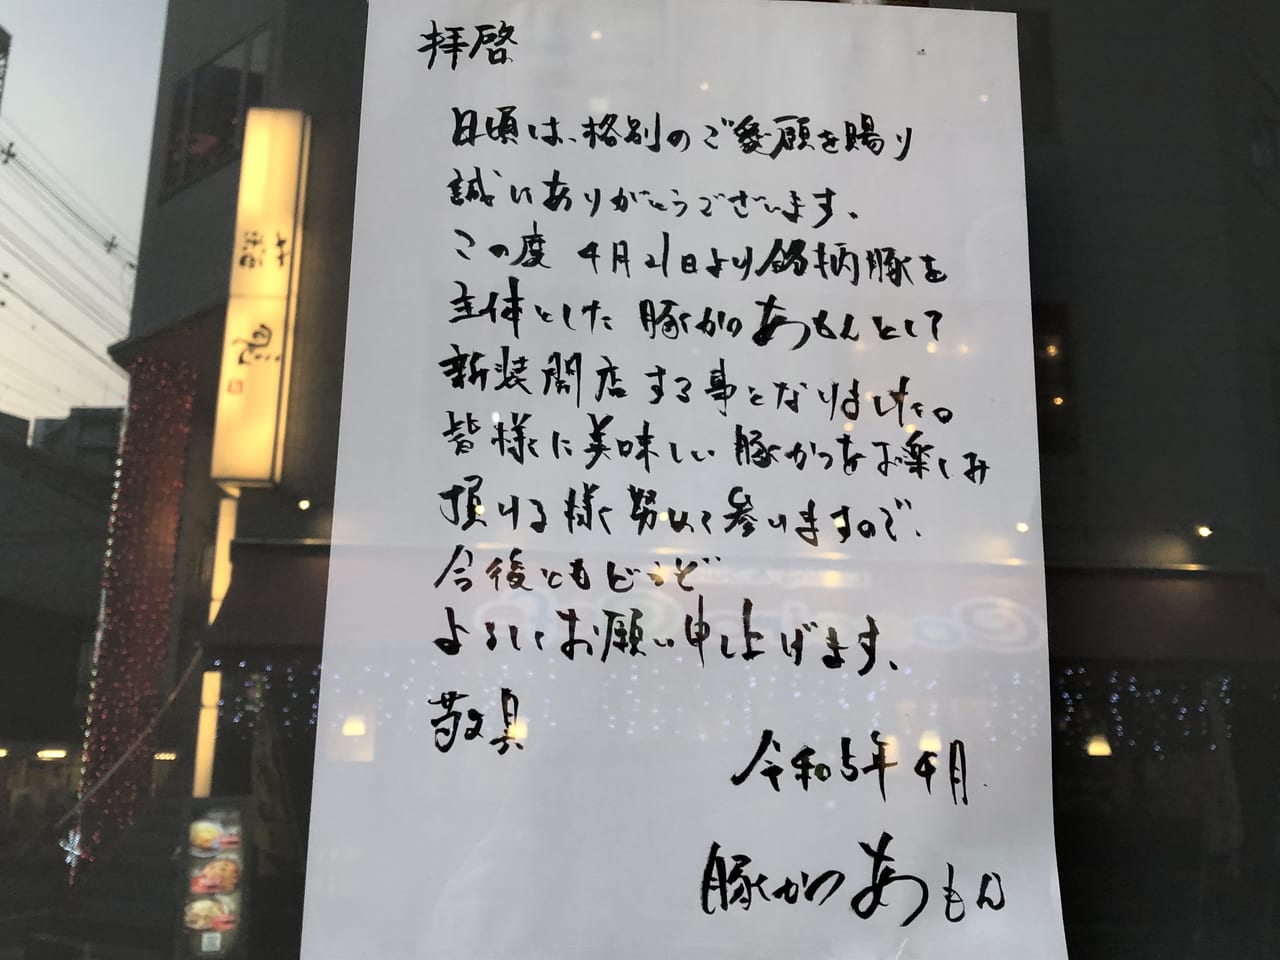 拝啓
日頃は、格別のご愛顧を賜り
誠にありがとうございます。
この度 4月21日より銘柄豚を
主体とした 豚かつ あもんとして
新装開店する事となりました。
皆様に美味しい 豚かつをお楽しみ
頂ける様 努めて参りますので、
今後ともどうぞ
よろしくお願い申し上げます。
敬具
令和5年4月
豚かつ あもん